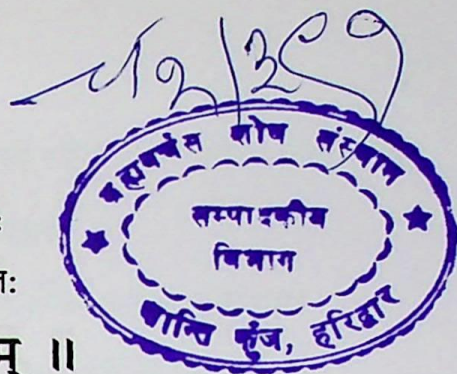 ब्रह्मवर्चस शोध संस्थान
सम्पादकीय
विभाग
शान्ति कुंज, हरिद्वार
:
तः
म् ॥